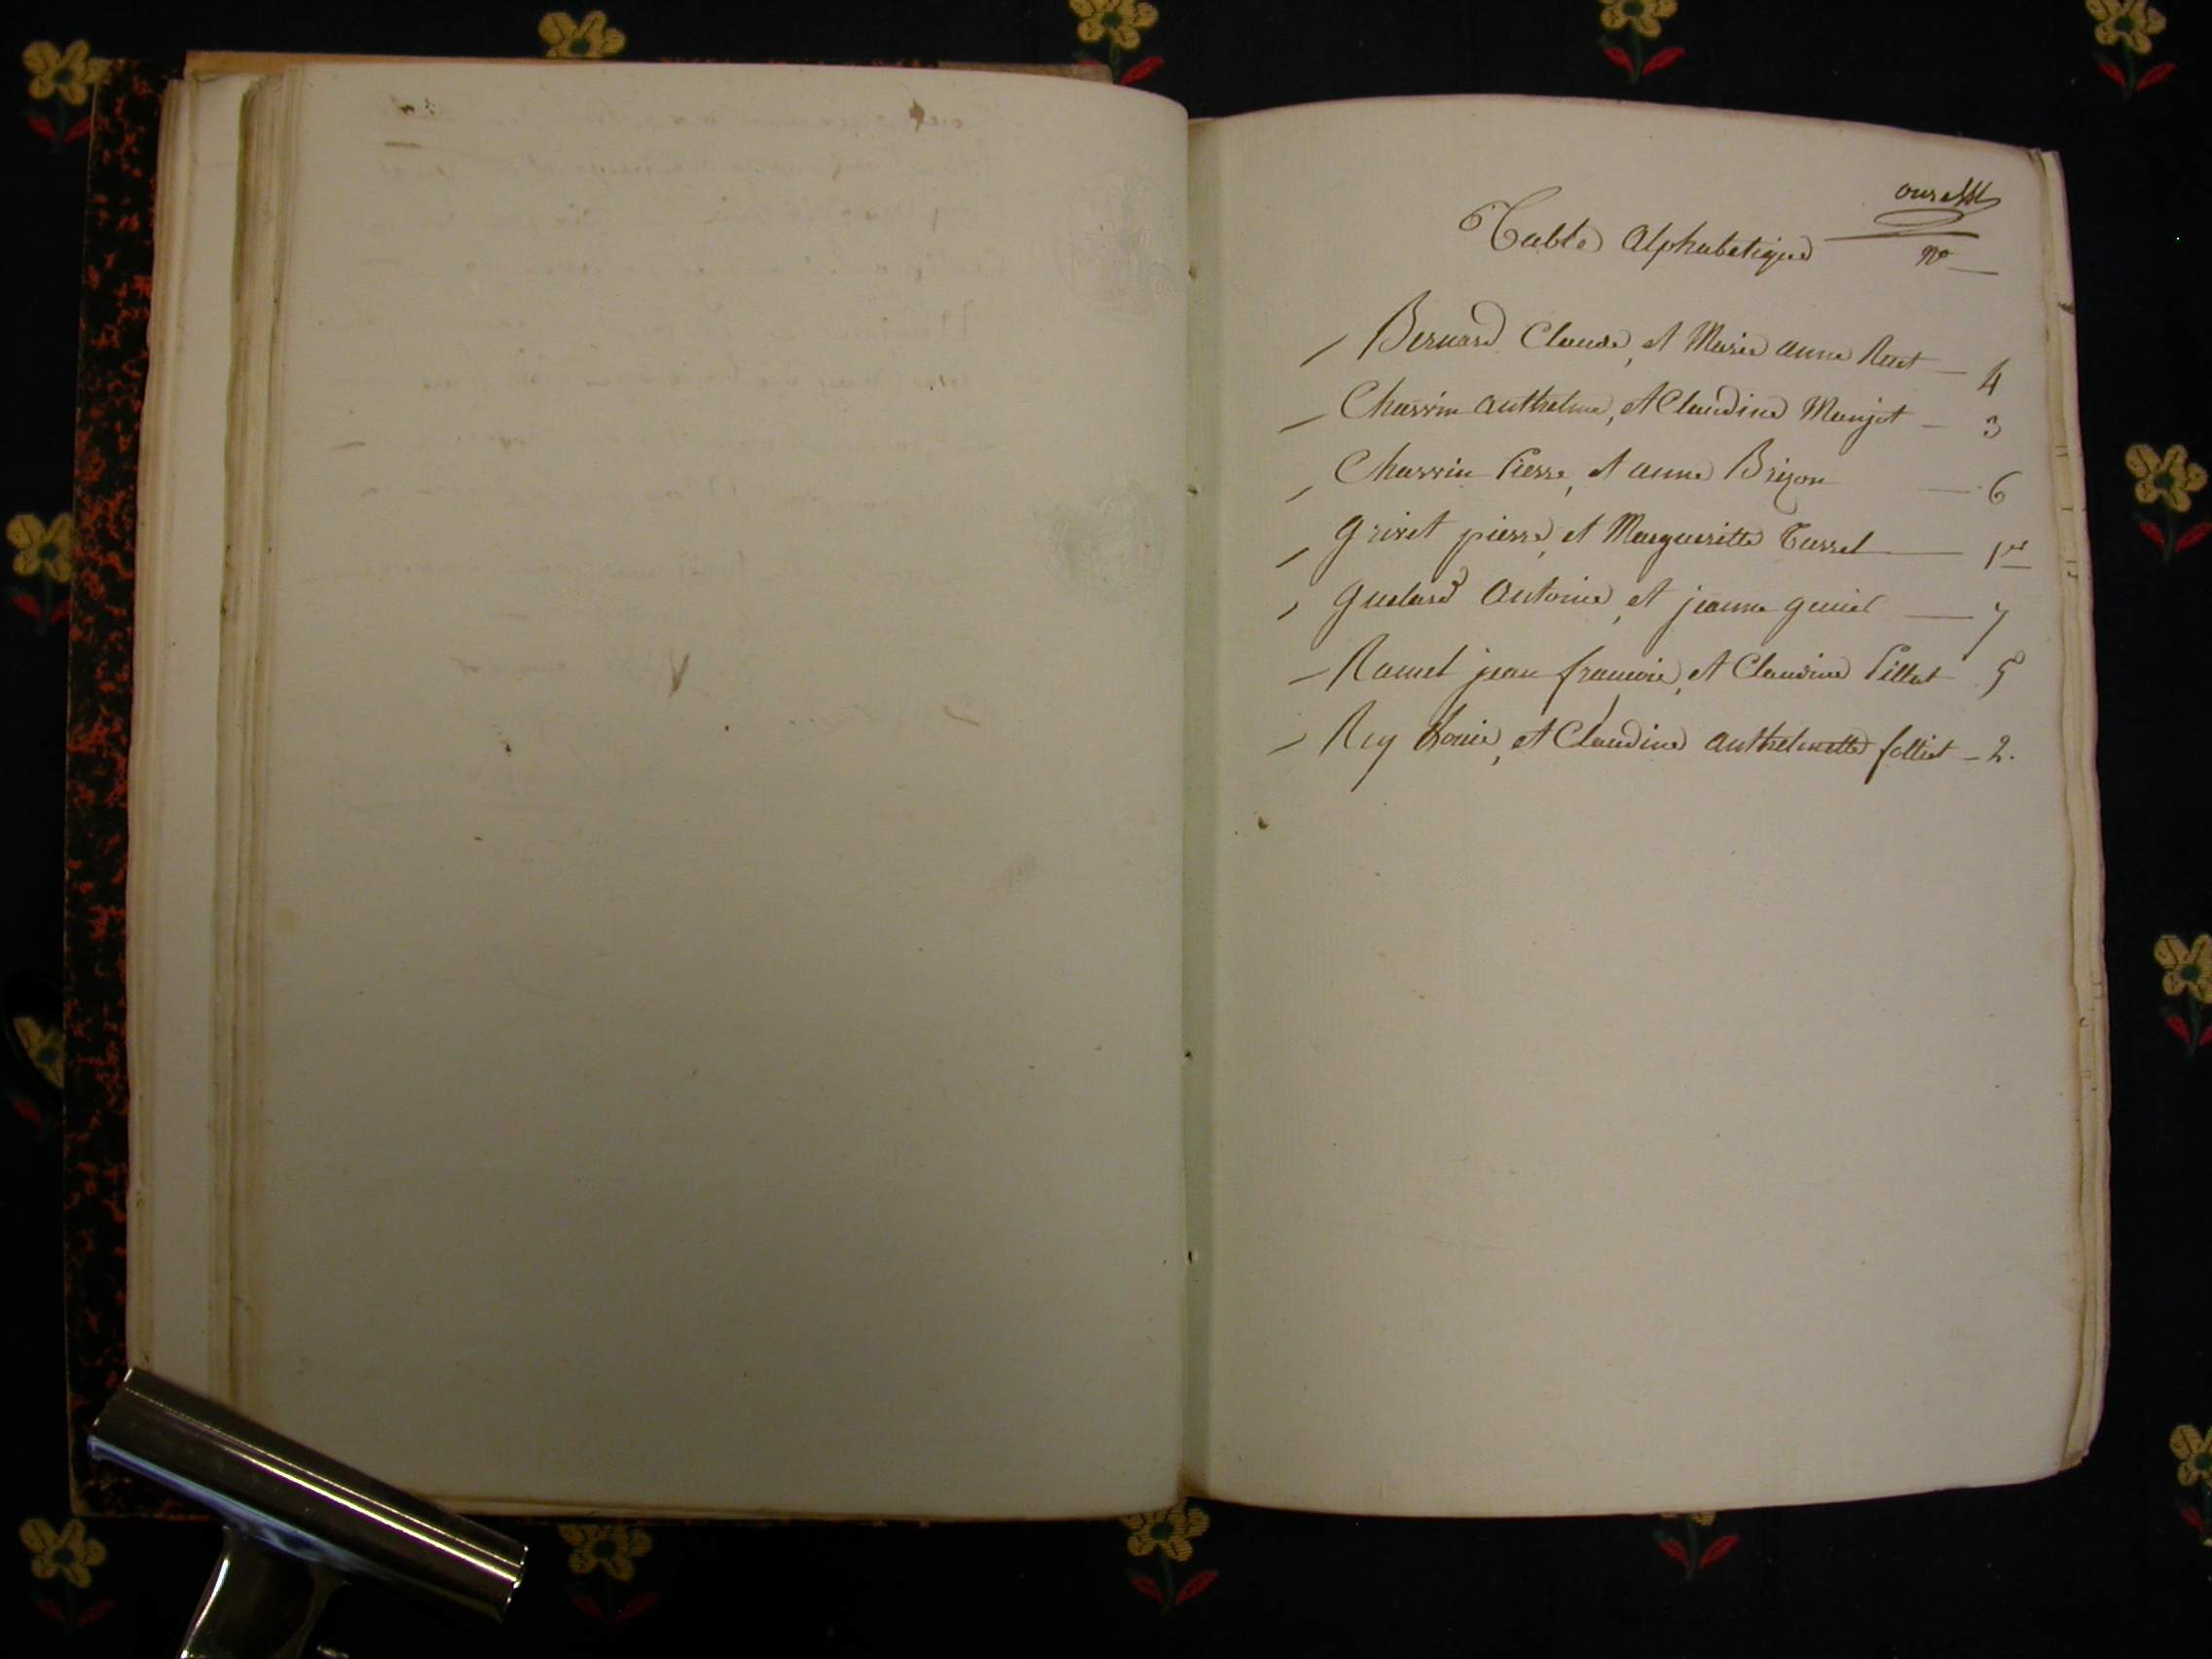 onze
Table Alphabetique
no
Bernard Claude, et Marie anne Ruet — 4
Charrin anthelme, et Claudine Manjot — 3
Charrin Pierre, et anne Brizon — 6
Grivet pierre, et Margueritte Turrel — 1er
Guelard Antoine, et jeanne guniel — 7
Ramel jean francois, et Claudine Pillat 5
Rey Louis, et Claudine Anthelmette folliet — 2.